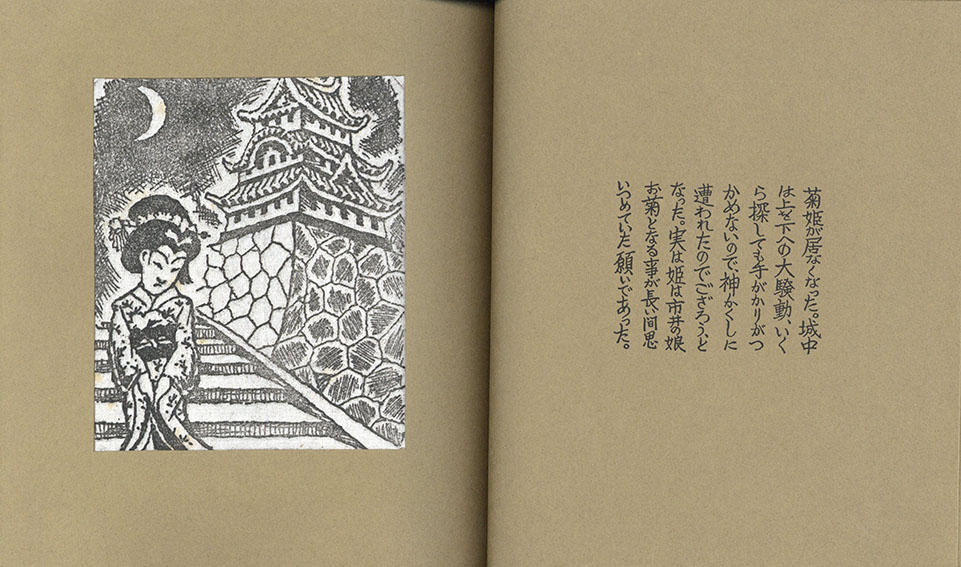 菊姫が居なくなった。城中
は上を下への大騒動、いく
ら探しても手がかりがつ
かめないので、神かくしに
遭われたのでござろう、と
なった。実は姫は市井の娘
お菊となる事が長い間思
いつめていた願いであった。